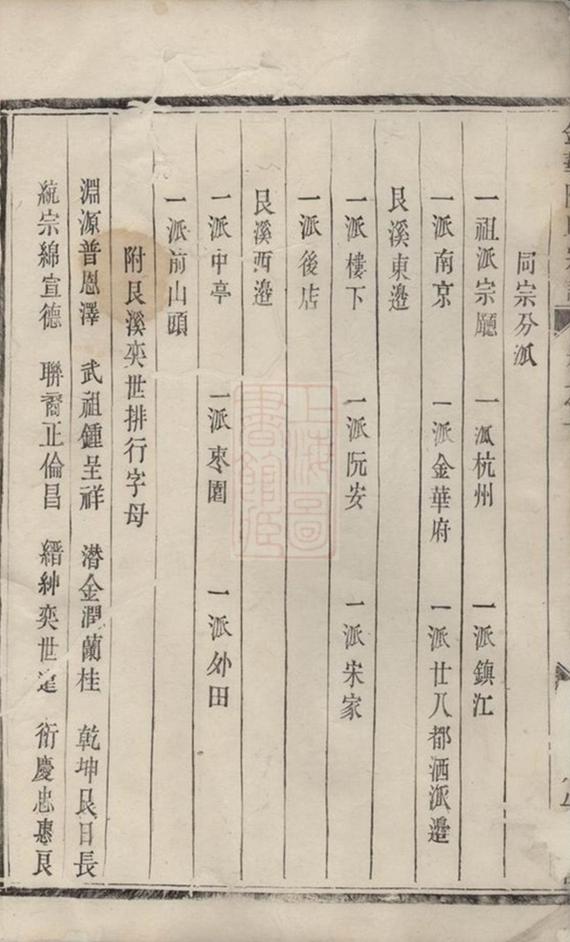 同宗分派
一祖派宗廳 一派杭州 一派鎮江
一派南京 一派金華府 一派廿八都洒派邉
艮溪東邉
一派樓下 一派阮安 一派宋家
一派後店
艮溪西邉
一派中亭 一派枣園 一派外田
一派前山頭
附艮溪奕世排行字母
淵源普恩澤 武祖鍾呈祥 潜金潤蘭桂 乾坤艮日長
統宗綿宣德 聯裔正倫昌 縉紳奕世 衍慶忠惠良
上海圖書館藏